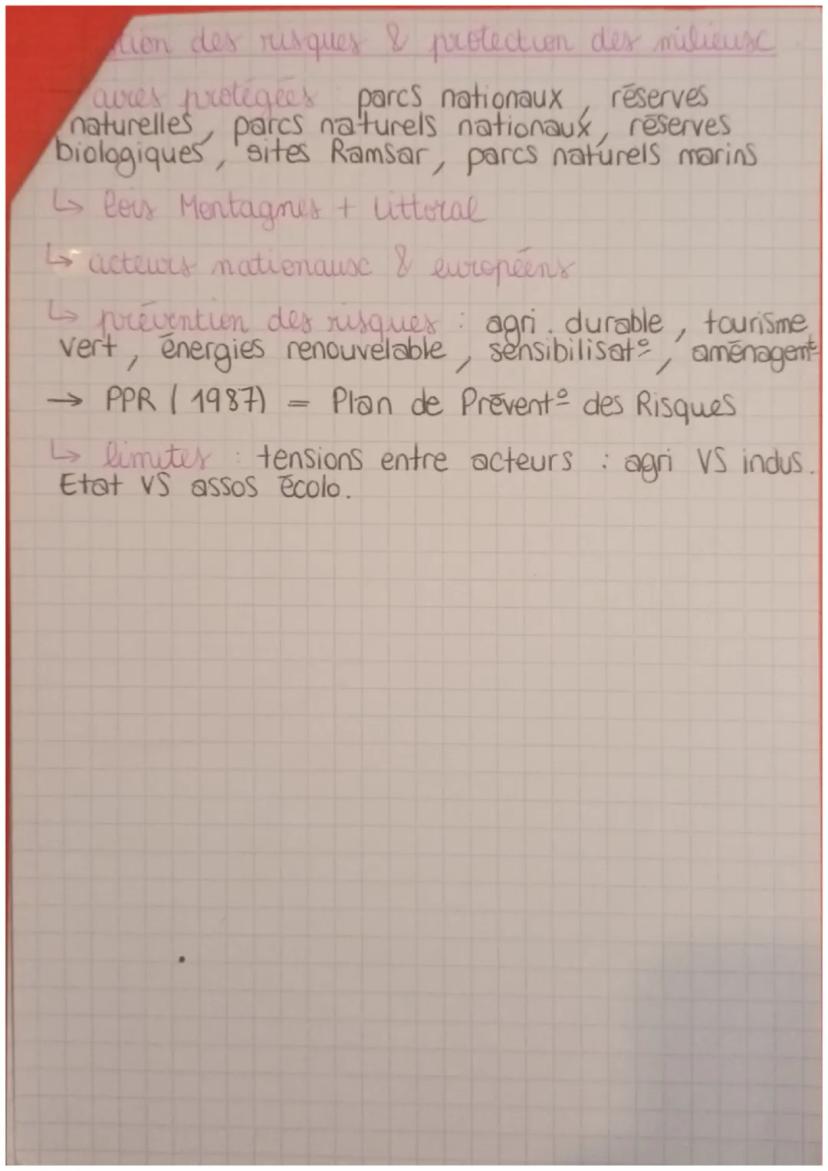 tion des risques & protection des milieux
aires protégées parcs nationaux, réserves
naturelles, parcs naturels nationaux, réserves
biologiques, sites Ramsar, parcs naturels marins
↳ lois Montagnes + Littoral
↳ acteurs nationaux & européens
↳ prévention des risques : agri. durable, tourisme
vert, énergies renouvelable, sensibilisat°, aménagent
→ PPR (1987) = Plan de Prévent° des Risques
↳ limites : tensions entre acteurs : agri VS indus.
Etat VS assos écolo.